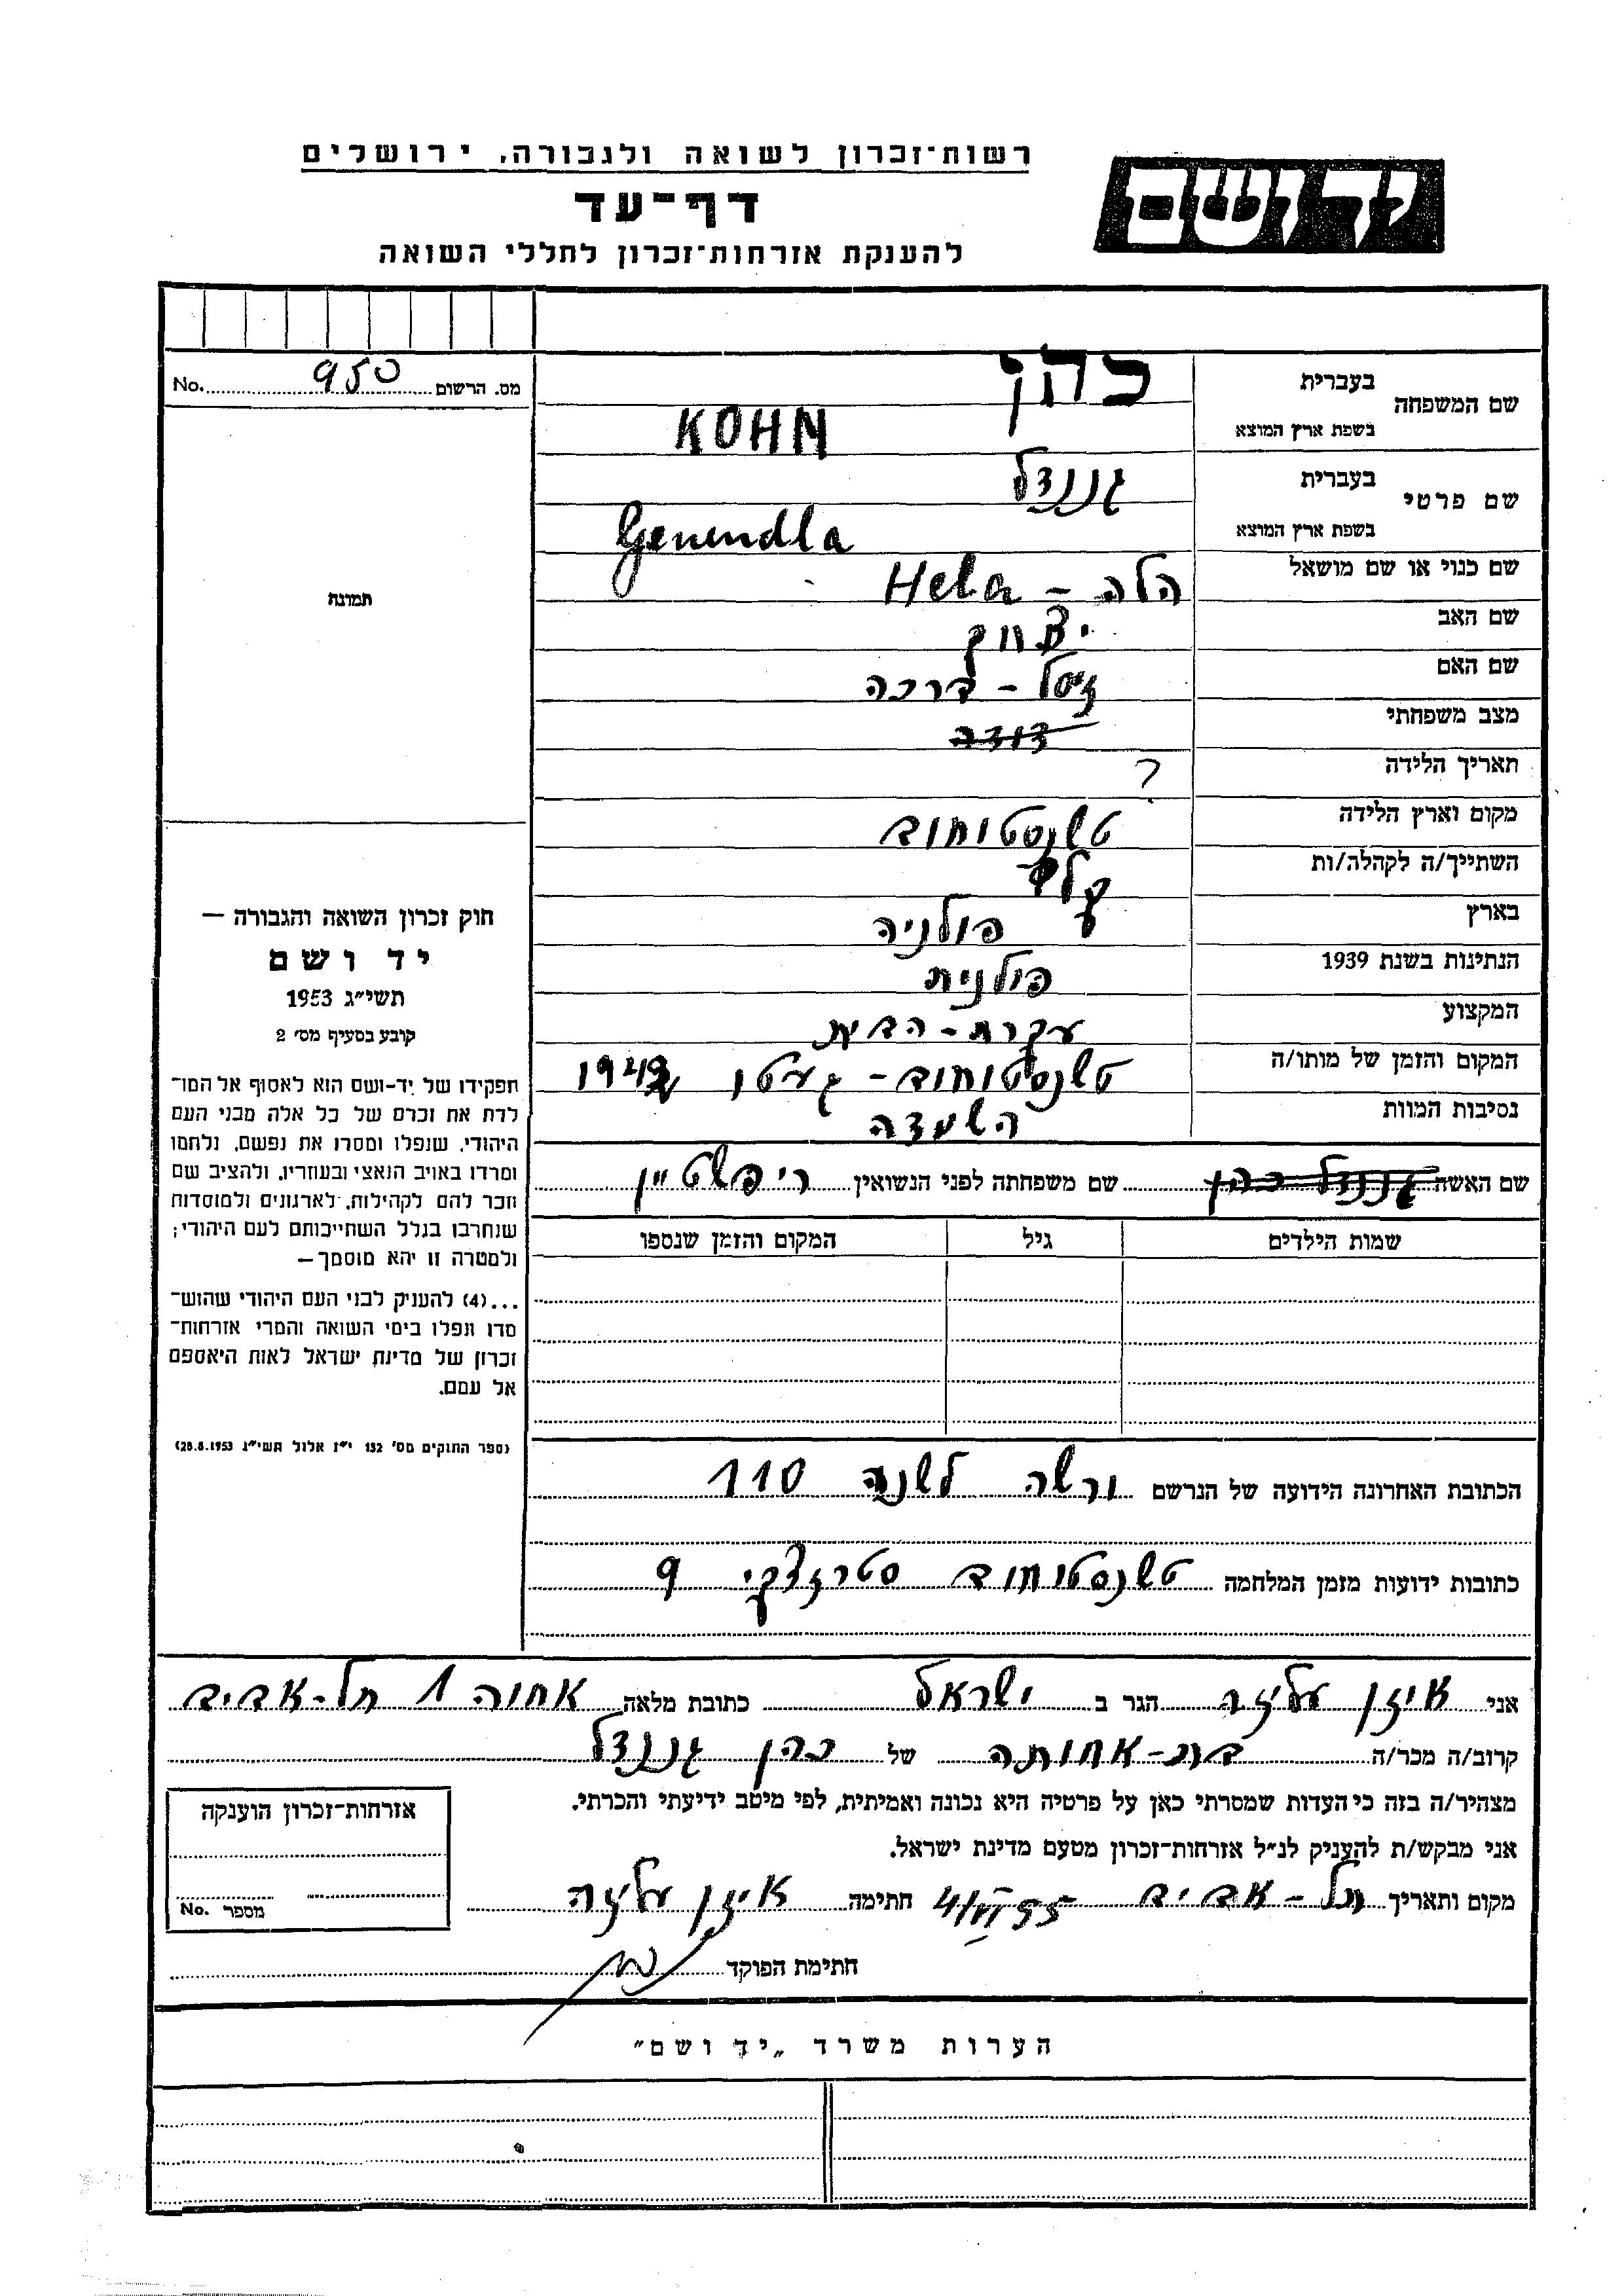 רשות־זכרון לשואה ולגבורה, ירושלים
יד ושם
דף־עד
להענקת אזרחות־זכרון לחללי השואה
מס. הרשום 950 No.
שם המשפחה
בעברית כהן
בשפת ארץ המוצא KOHN
שם פרטי
בעברית גננדל
בשפת ארץ המוצא Genendla
שם כנוי או שם מושאל הלה - Hela
שם האב יצחק
שם האם זיסל - ברכה
מצב משפחתי דודה
תאריך הלידה ?
מקום וארץ הלידה טשנסטוחוב
השתייך/ה לקהלה/ות
בארץ פולניה
הנתינות בשנת 1939 פולנית
המקצוע עקרת - הבית
המקום והזמן של מותו/ה טשנסטוחוב - געטו
נסיבות המוות השמדה
שם האשה גננדל כהן שם משפחתה לפני הנשואין ריפשטיין
שמות הילדים גיל המקום והזמן שנספו
הכתובת האחרונה הידועה של הנרשם ורשה לשנה 110
כתובות ידועות מזמן המלחמה טשנסטוחוב 9
תמונה
חוק זכרון השואה והגבורה —
יד ושם
תשי״ג 1953
קובע בסעיף מס׳ 2
תפקידו של יד-ושם הוא לאסוף אל המו־
לדת את זכרם של כל אלה מבני העם
היהודי, שנפלו ומסרו את נפשם, נלחמו
ומרדו באויב הנאצי ובעוזריו, ולהציב שם
וזכר להם לקהילות, לארגונים ולמוסדות
שנחרבו בגלל השתייכותם לעם היהודי;
ולמטרה זו יהא מוסמך —
...(4) להעניק לבני העם היהודי שהוש־
מדו ונפלו בימי השואה והמרי אזרחות־
זכרון של מדינת ישראל לאות היאספם
אל עמם.
(ספר החוקים מס׳ 132 י״ז אלול תשי״ג 28.8.1953)
אני איזן עליזה הגר ב ישראל כתובת מלאה אחוה 1 תל-אביב
קרוב/ה מכר/ה בת-אחותה של כהן גננדל
מצהיר/ה בזה כי העדות שמסרתי כאן על פרטיה היא נכונה ואמיתית, לפי מיטב ידיעתי והכרתי.
אני מבקש/ת להעניק לנ״ל אזרחות־זכרון מטעם מדינת ישראל.
מקום ותאריך תל-אביב 4/VI 55 חתימה איזן עליזה
חתימת הפוקד
אזרחות־זכרון הוענקה
מספר No.
הערות משרד „יד ושם״